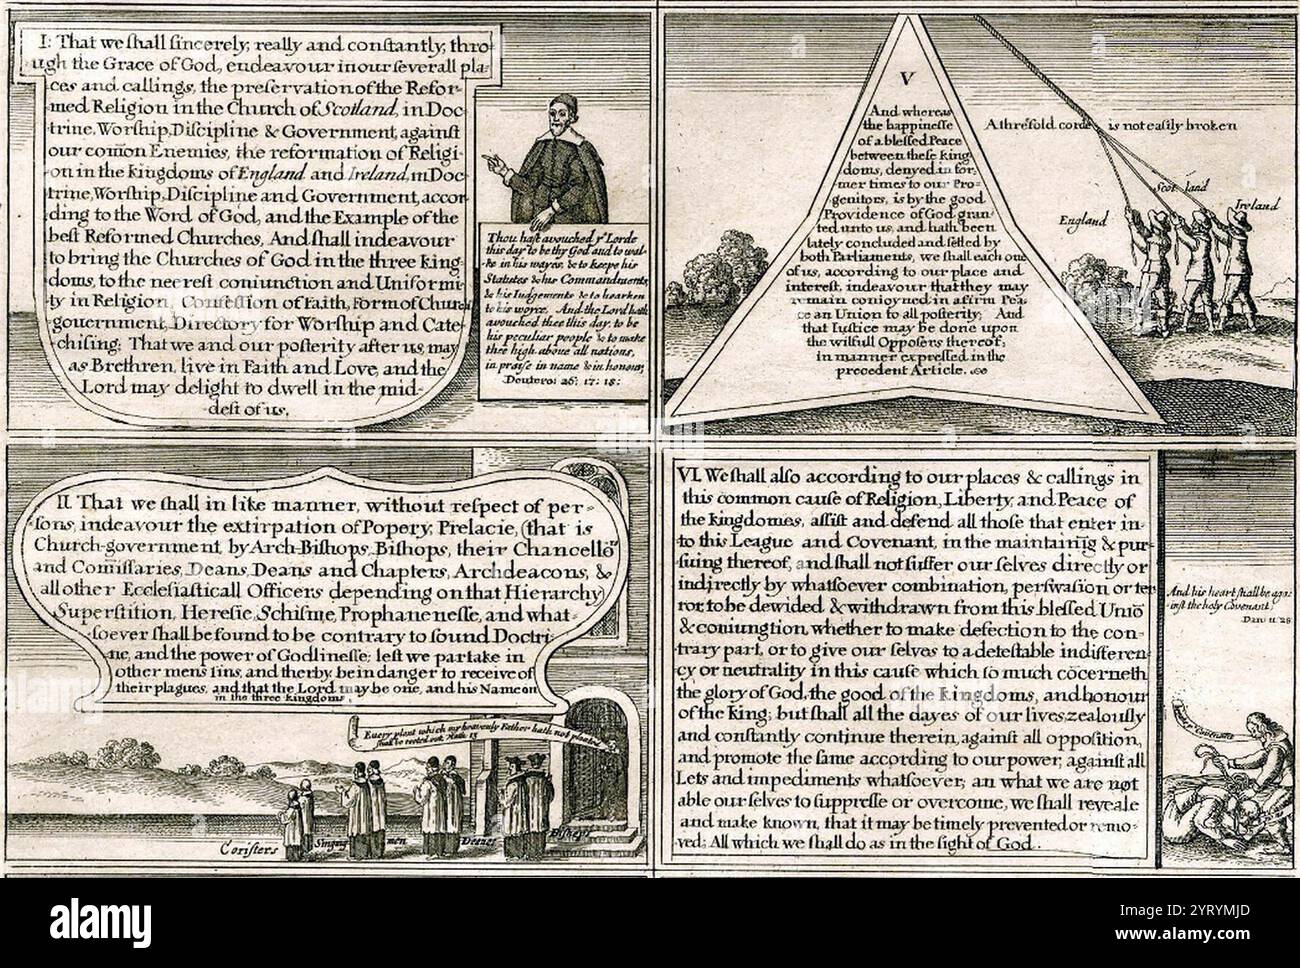 I: That we shall sincerely, really and constantly, thro-
ugh the Grace of God, endeavour in our severall pla-
ces and callings, the preservation of the Refor-
med Religion in the Church of Scotland, in Doc-
trine, Worship, Discipline & Government, against
our com̄on Enemies, the reformation of Religi-
on in the kingdoms of England and Ireland, in Doc-
trine, Worship, Discipline and Government, accor-
ding to the Word of God, and the Example of the
best Reformed Churches, And shall indeavour
to bring the Churches of God in the three king-
doms, to the neerest coniunction and Uniformi-
ty in Religion, Confession of Faith, Form of Church
government, Directory for Worship and Cate-
chising; That we and our posterity after us, may
as Brethren, live in Faith and Love, and the
Lord may delight to dwell in the mid-
dest of us.
Thou hast avouched yᵉ Lorde
this day to be thy God and to wal-
ke in his wayes, & to keepe his
Statutes & his Commandments,
& his Iudgements & to hearken
to his voyce. And the Lord hath
avouched thee this day to be
his peculiar people & to make
thee high above all nations,
in praise in name & in honour,
Deutero: 26: 17: 18:
V
And whereas
the happinesse
of a blessed Peace
between these king
doms, denyed in for-
mer times to our Pro-
genitors, is by the good
Providence of God gran-
ted unto us, and hath been
lately concluded and setled by
both Parliaments, we shall each one
of us, according to our place and
interest, indeavour that they may
remain conioyned in a firm Pea-
ce an Union to all posterity; And
that Iustice may be done upon
the wilfull Opposers thereof;
in manner expressed in the
precedent Article.
A thresold corde is not easily broken
England
Scot land
Ireland
II. That we shall in like manner, without respect of per-
sons, indeavour the extirpation of Popery, Prelacie, (that is
Church-government, by Arch-Bishops, Bishops, their Chancelloʳˢ
and Com̄issaries, Deans, Deans and Chapters, Archdeacons, &
all other Ecclesiasticall Officers depending on that Hierarchy)
Superstition, Heresie, Schisme, Prophanenesse, and what-
soever shall be found to be contrary to sound Doctri-
ne, and the power of Godlinesse; lest we partake in
other mens sins, and therby be in danger to receive of
their plagues, and that the Lord may be one, and his Name one
in the three kingdoms.
Every plant which my heavenly Father hath not planted
shall be rooted out. Math 15
Coristers
Singing men
Deanes
Bishops
VI. We shall also according to our places & callings in
this common cause of Religion, Liberty, and Peace of
the kingdomes, assist and defend all those that enter in-
to this League and Covenant, in the maintainīg & pur-
suing thereof, and shall not suffer our selves directly or
indirectly by whatsoever combination, perswasion or ter
ror, to be devided & withdrawn from this blessed Uniō
& coniungtion, whether to make defection to the con-
trary part, or to give our selves to a detestable indifferen-
cy or neutrality in this cause which so much cōcerneth
the glory of God, the good of the kingdoms, and honour
of the king; but shall all the dayes of our lives, zealously
and constantly continue therein, against all opposition,
and promote the same according to our power, against all
Lets and impediments whatsoever; an what we are not
able our selves to suppresse or overcome, we shall reveale
and make known, that it may be timely prevented or remo-
ved; All which we shall do as in the sight of God.
And his heart shall be aga-
inst the holy Covenant.
Dan 11 28
Covenant
alamy
Image ID: 2YRYMJD
www.alamy.com